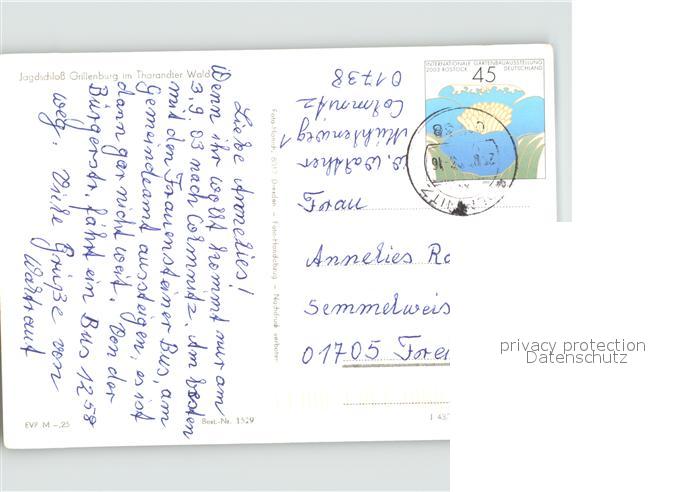 Jagdschloß Grillenburg im Tharandter Wald
Liebe Annelies!
Wenn ihr wollt kommt nur am
3.9.03 nach Colmnitz. Am besten
mit den Frauensteiner Bus, am
Gemeindeamt aussteigen, es ist
dann gar nicht weit. Von der
Bürgerstr. fährt ein Bus 12 58
weg. Viele Grüße von
Waltraut
EVP M -,25
Best.-Nr. 1529
Dresden — Foto-Handabzug — Nachdruck verboten
W. Walther
Mühlenweg 1
Colmnitz
01738
INTERNATIONALE GARTENBAUAUSSTELLUNG
2003 ROSTOCK DEUTSCHLAND
45
Frau
Annelies
Semmelweis
01705
privacy protection
Datenschutz